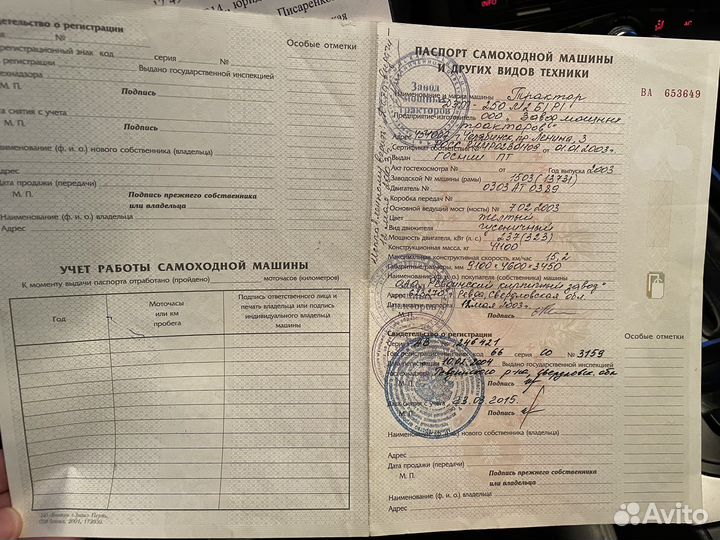 Писаренко
видетельство о регистрации
Особые отметки
№
регистрационный знак код серия №
регистрации Выдано государственной инспекцией
технадзора
М. П. Подпись
та снятия с учета
М. П. Подпись
Наименование (ф. и. о.) нового собственника (владельца)
Адрес
Дата продажи (передачи) Подпись прежнего собственника
М. П. или владельца
Наименование (ф. и. о.) нового собственника (владельца)
Адрес
УЧЕТ РАБОТЫ САМОХОДНОЙ МАШИНЫ
К моменту выдачи паспорта отработано (пройдено) моточасов (километров)
Год
Моточасы
или км
пробега
Подпись ответственного лица и
печать владельца или подпись
индивидуального владельца
машины
ПАСПОРТ САМОХОДНОЙ МАШИНЫ
И ДРУГИХ ВИДОВ ТЕХНИКИ
ВА 653649
Завод
мощных
тракторов
Наименование и марка машины Трактор
ДЭТ-250М2Б1Р1
Предприятие изготовитель ООО "Завод мощных
тракторов"
Адрес 454007 г. Челябинск пр. Ленина, 3
Сертификат соответствия № от 01.01.2003г.
Выдан ГОСНИИ ПТ
Акт гостехосмотра № от Год выпуска 2003
Заводской № машины (рамы) 1503 (13731)
Двигатель № 0303АТ0389
Коробка передач №
Основной ведущий мост (мосты) № 702 2003
Цвет желтый
Вид движителя гусеничный
Мощность двигателя, кВт (л. с.) 237 (323)
Конструкционная масса, кг 41100
Максимальная конструктивная скорость, км/час 15,2
Габаритные размеры, мм 9100×4600×3450
Наименование (ф. и. о.) покупателя (собственника) машины
ОАО "Ревдинский кирпичный завод"
Адрес г. Ревда, Свердловская обл.
Дата 12 мая 2003г.
М. П. Подпись
Свидетельство о регистрации Особые отметки
Серия АВ № 246421
Гос. регистрационный знак код 66 серия СО № 3159
Дата регистрации 10.02.2004 Выдано государственной инспекцией
Ревдинского р-на, Свердловск. обл.
М. П. Подпись
Дата снятия с учета 23.03.2015.
М. П. Подпись
Наименование (ф. и. о.) нового собственника (владельца)
Адрес
Дата продажи (передачи) Подпись прежнего собственника
М. П. или владельца
Наименование (ф. и. о.) нового собственника (владельца)
Адрес
Avito